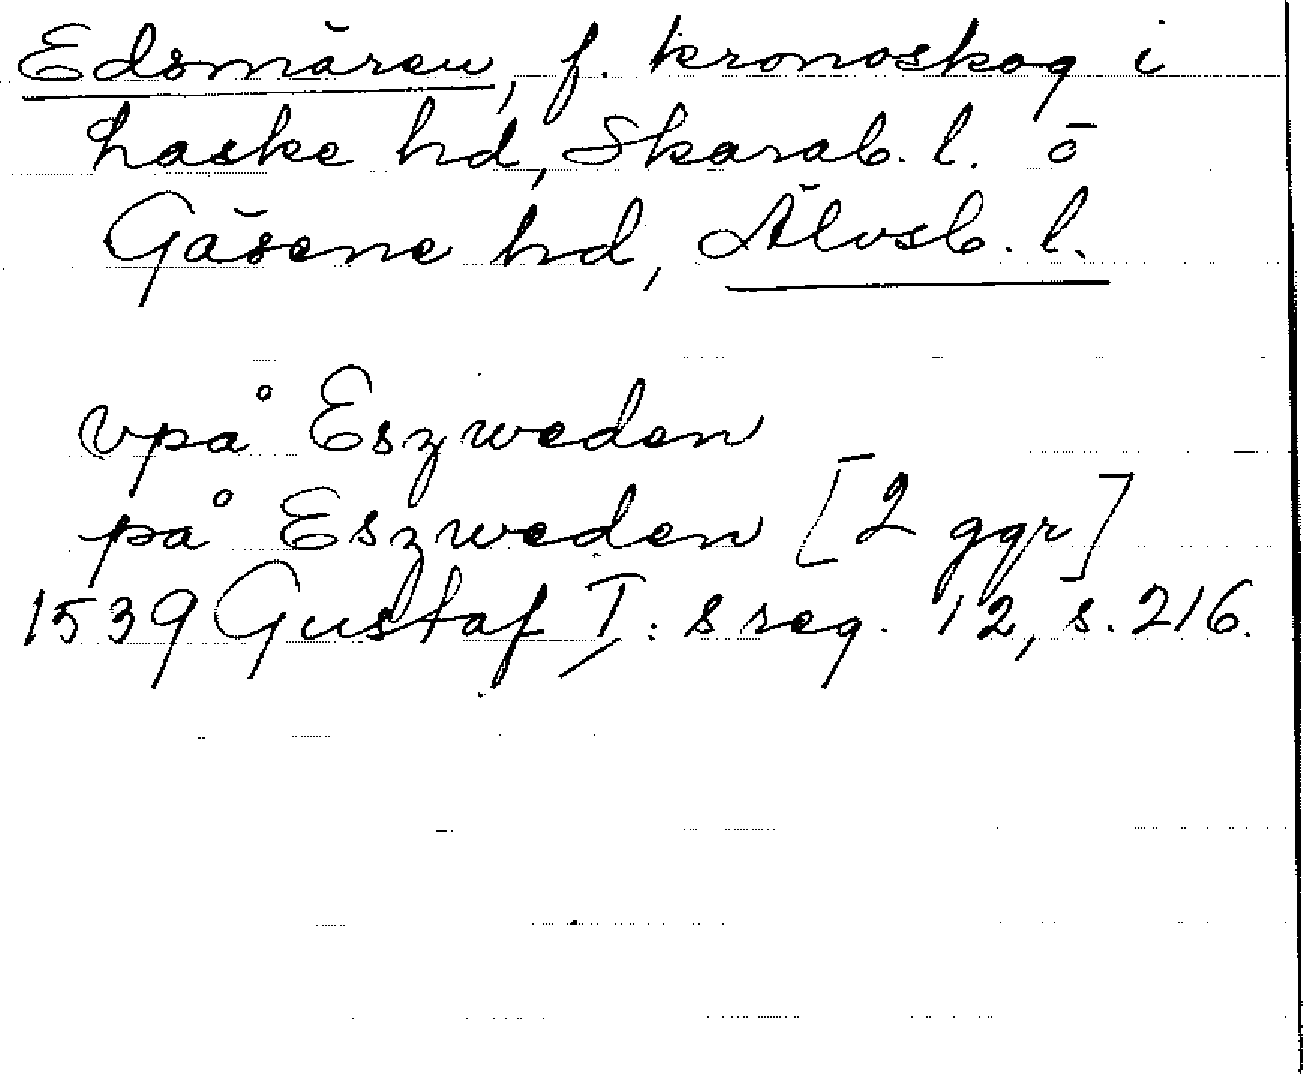 Edsmären, f. kronoskog i
Laske hd, Skarab. l. o
Gäsene hd, Älvsb. l.
vpå Eszweden
på Eszweden [2 ggr]
1539 Gustaf I:s reg. 12, s. 216.